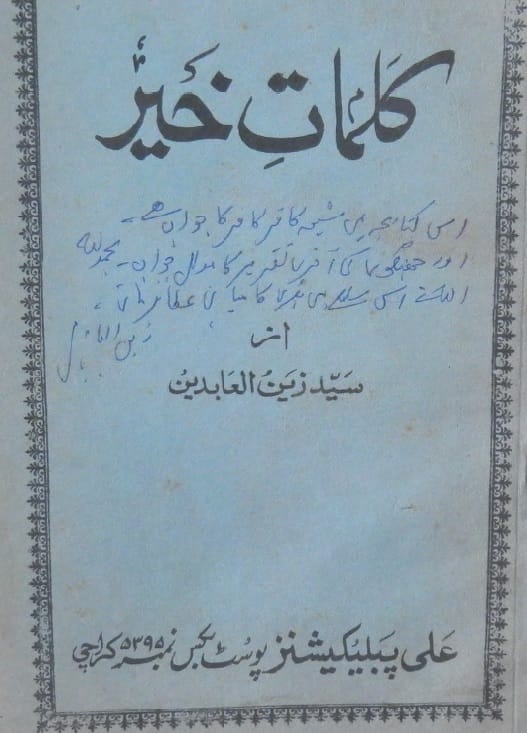 کلماتِ خیر
اس کتابچہ میں شیعہ کافر کافر کا جواب ہے۔
اور جھنگوی کی آخری تقریر کا مدلل جواب۔ بحمد للہ
اللہ نے اس سلسلہ میں کامیابی عطا فرمائی۔
از
سیّد زینُ العابدین
علی پبلیکیشنز پوسٹ بکس نمبر ۵۳۹۵ کراچی